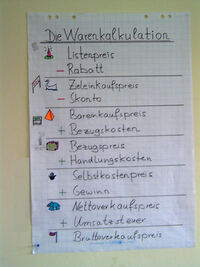 Die Warenkalkulation
Listenpreis
- Rabatt
Zieleinkaufspreis
- Skonto
Bareinkaufspreis
+ Bezugskosten
Bezugspreis
+ Handlungskosten
Selbstkostenpreis
+ Gewinn
Nettoverkaufspreis
+ Umsatzsteuer
Bruttoverkaufspreis